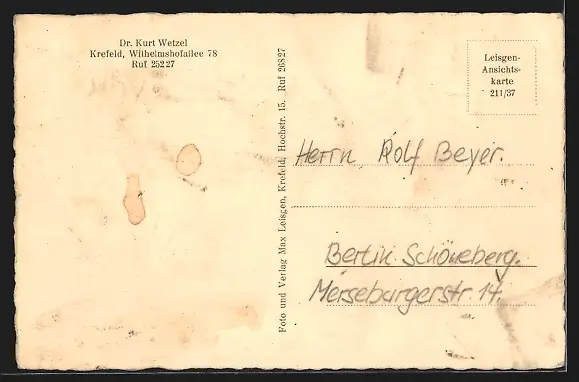 Dr. Kurt Wetzel
Krefeld, Wilhelmshofallee 78
Ruf 25227
Foto und Verlag Max Leisgen, Krefeld, Hochstr. 15. Ruf 26827
Leisgen-
Ansichts-
karte
211/37
Herrn Rolf Beyer.
Berlin Schöneberg.
Merseburgerstr. 14.